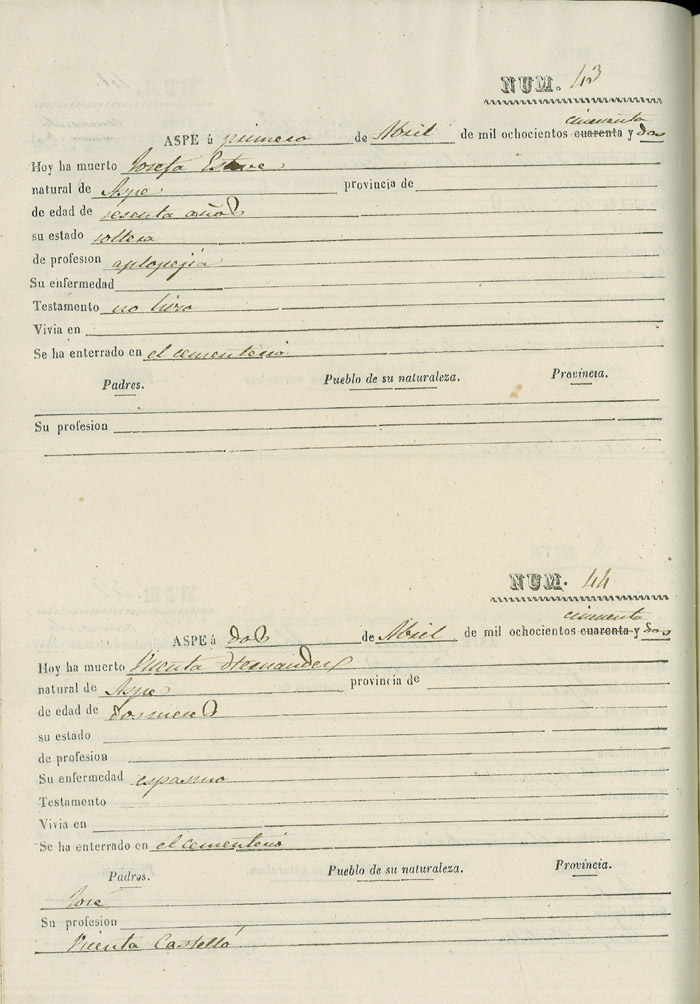 NUM. 43
cincuenta
ASPE á primero de Abril de mil ochocientos cuarenta y dos
Hoy ha muerto Josefa Esteve
natural de Aspe provincia de
de edad de sesenta años
su estado soltera
de profesion aplopejia
Su enfermedad
Testamento no hizo
Vivia en
Se ha enterrado en el cementerio
Padres. Pueblo de su naturaleza. Provincia.
Su profesion
NUM. 44
cincuenta
ASPE á dos de Abril de mil ochocientos cuarenta y dos
Hoy ha muerto Vicenta Hernandez
natural de Aspe provincia de
de edad de dos meses
su estado
de profesion
Su enfermedad espasmo
Testamento
Vivia en
Se ha enterrado en el cementerio
Padres. Pueblo de su naturaleza. Provincia.
José
Su profesion
Vicenta Castelló